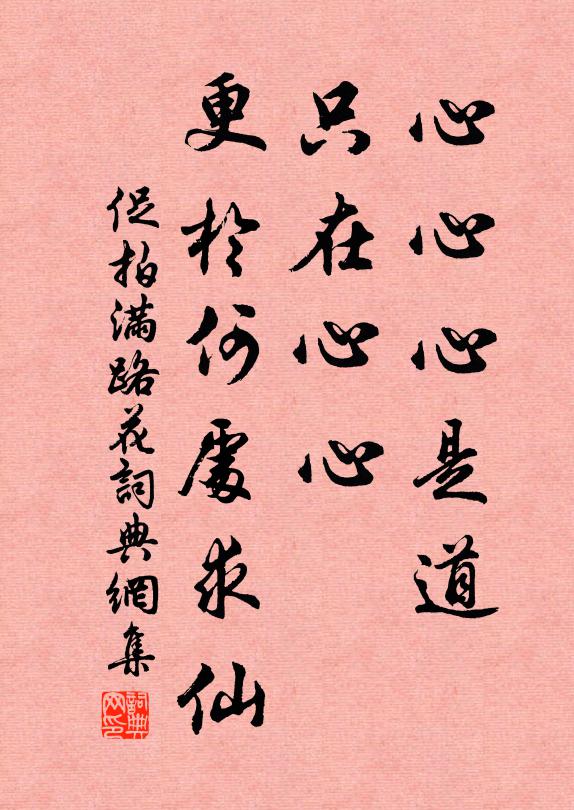 心心心是道
只在心心
更於何處求仙
促拍滿路花詞典網集
詞典
网印